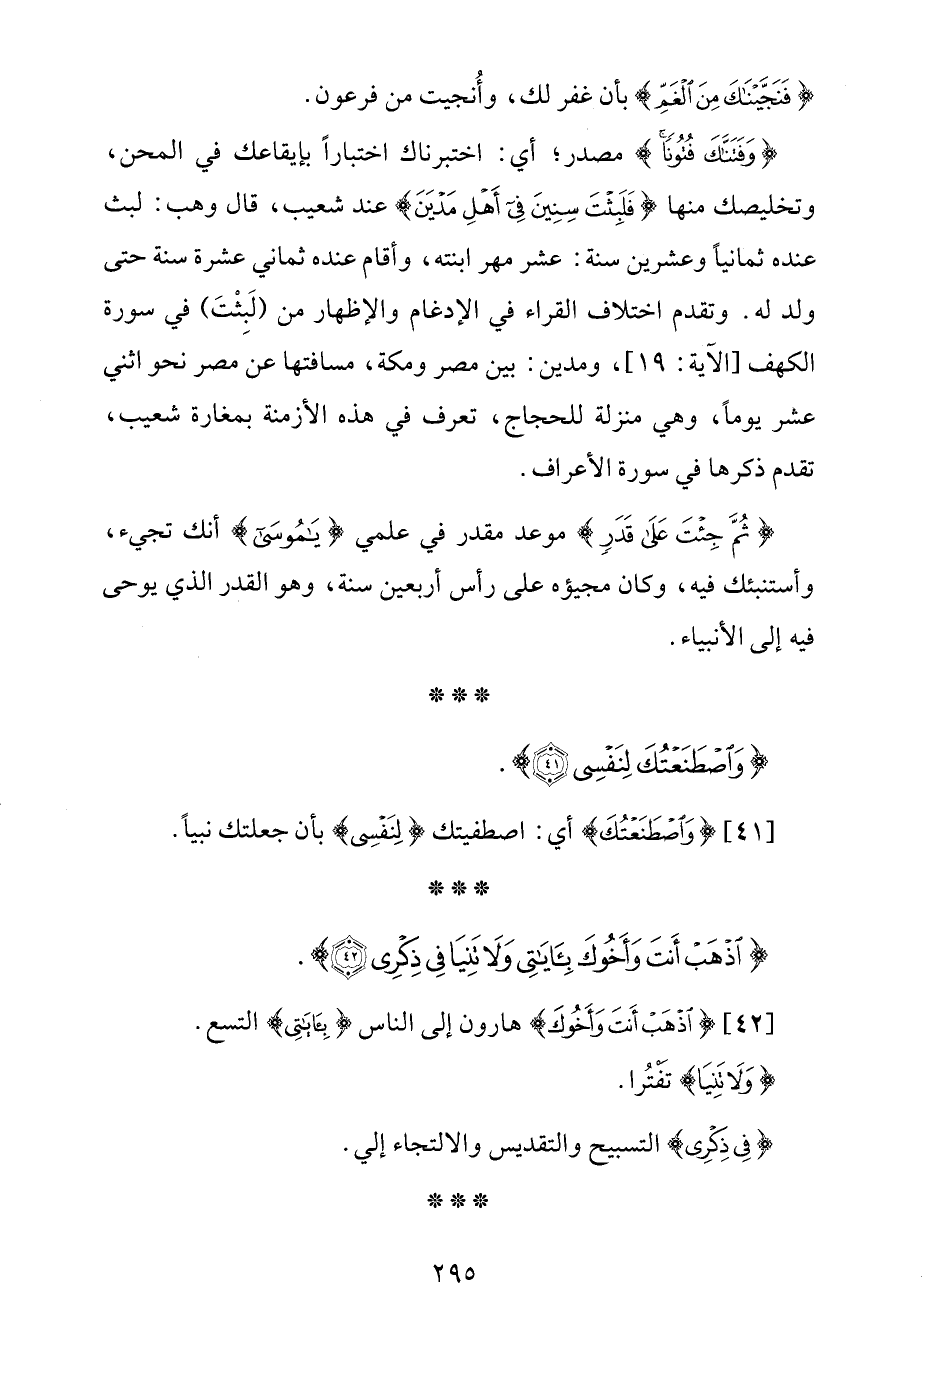 ﴿فَنَجَّيْنَاكَ مِنَ الْغَمِّ﴾ بأن غفر لك، وأُنجيت من فرعون.
﴿وَفَتَنَّاكَ فُتُونًا﴾ مصدر؛ أي: اختبرناك اختباراً بإيقاعك في المحن،
وتخليصك منها ﴿فَلَبِثْتَ سِنِينَ فِي أَهْلِ مَدْيَنَ﴾ عند شعيب، قال وهب: لبث
عنده ثمانياً وعشرين سنة: عشر مهر ابنته، وأقام عنده ثماني عشرة سنة حتى
ولد له. وتقدم اختلاف القراء في الإدغام والإظهار من (لَبِثْتَ) في سورة
الكهف [الآية: ١٩]، ومدين: بين مصر ومكة، مسافتها عن مصر نحو اثني
عشر يوماً، وهي منزلة للحجاج، تعرف في هذه الأزمنة بمغارة شعيب،
تقدم ذكرها في سورة الأعراف.
﴿ثُمَّ جِئْتَ عَلَىٰ قَدَرٍ﴾ موعد مقدر في علمي ﴿يَامُوسَىٰ﴾ أنك تجيء،
وأستنبئك فيه، وكان مجيؤه على رأس أربعين سنة، وهو القدر الذي يوحى
فيه إلى الأنبياء.
* * *
﴿وَاصْطَنَعْتُكَ لِنَفْسِي ٤١﴾.
[٤١] ﴿وَاصْطَنَعْتُكَ﴾ أي: اصطفيتك ﴿لِنَفْسِي﴾ بأن جعلتك نبياً.
* * *
﴿اذْهَبْ أَنتَ وَأَخُوكَ بِآيَاتِي وَلَا تَنِيَا فِي ذِكْرِي ٤٢﴾.
[٤٢] ﴿اذْهَبْ أَنتَ وَأَخُوكَ﴾ هارون إلى الناس ﴿بِآيَاتِي﴾ التسع.
﴿وَلَا تَنِيَا﴾ تفْتُرا.
﴿فِي ذِكْرِي﴾ التسبيح والتقديس والالتجاء إلي.
* * *
٢٩٥